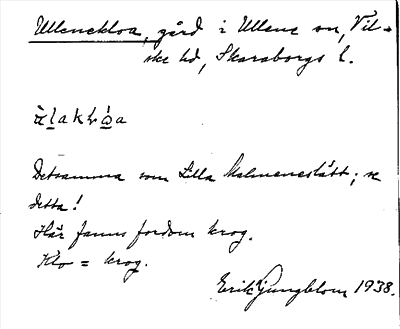 Ullenekloa, gård i Ullene sn, Vil-
ske hd, Skaraborgs l.
Detsamma som Lilla Malmeneslätt; se
detta!
Här fanns fordom krog.
Klo = krog.
Erik Ljungblom 1938.